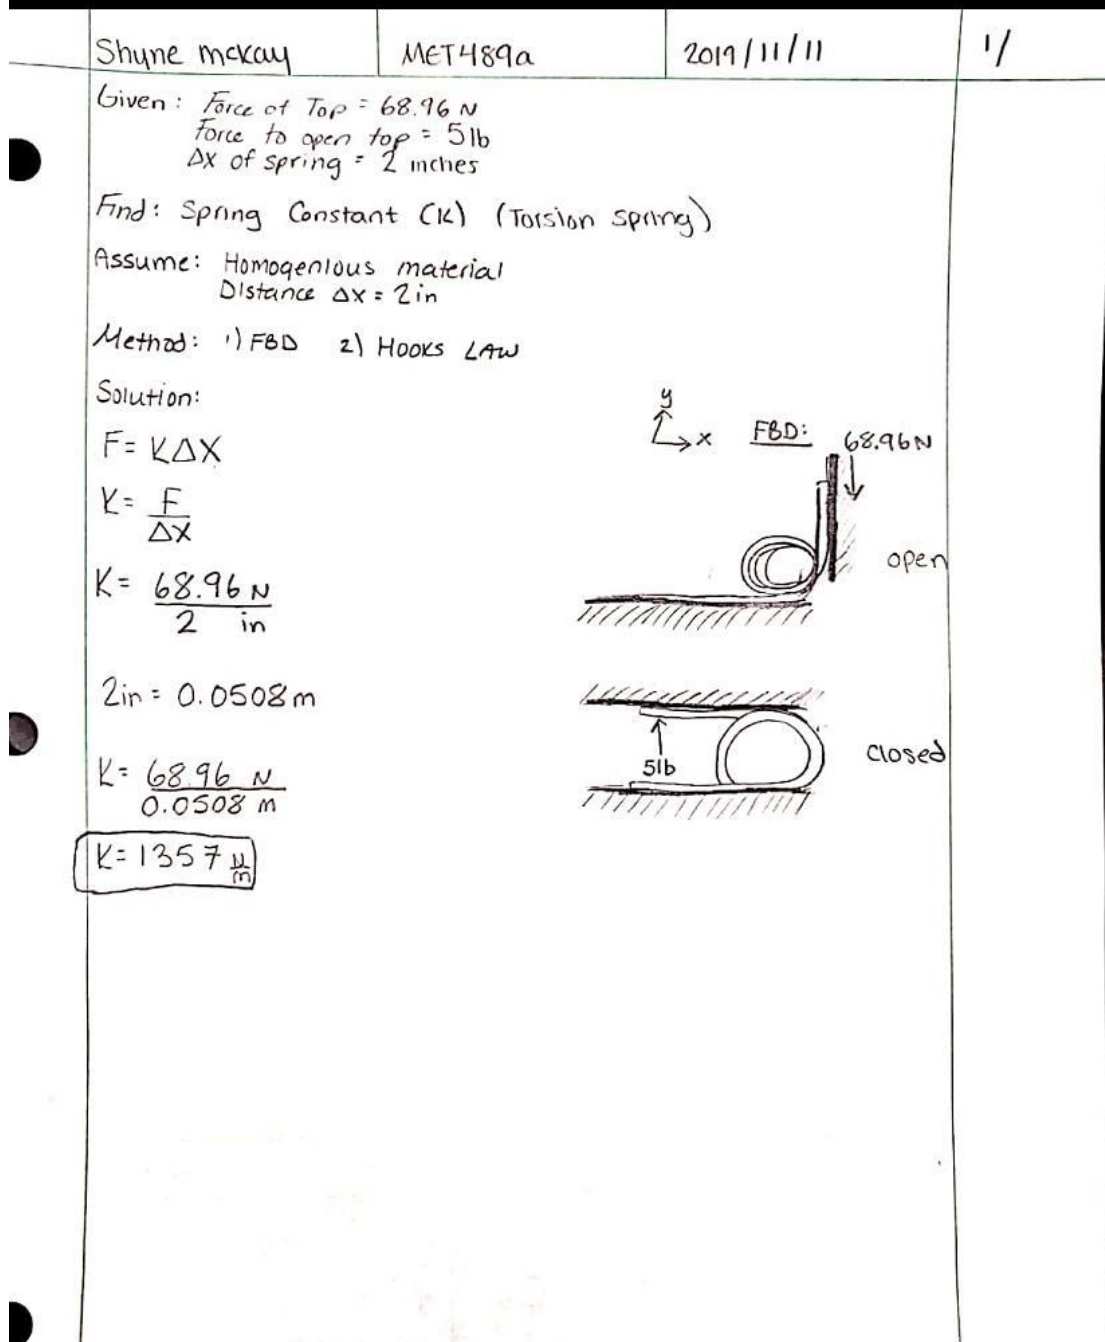 Shyne mckay MET489a 2019/11/11 1/
Given: Force of Top = 68.96 N
Force to open top = 5lb
Δx of spring = 2 inches
Find: Spring Constant (K) (Torsion spring)
Assume: Homogenious material
Distance Δx = 2in
Method: 1) FBD 2) HOOKS LAW
Solution:
y
x FBD: 68.96N
F = KΔX
K = F
ΔX
open
K = 68.96 N
2 in
2in = 0.0508m
closed
5lb
K = 68.96 N
0.0508 m
K = 1357 N/m